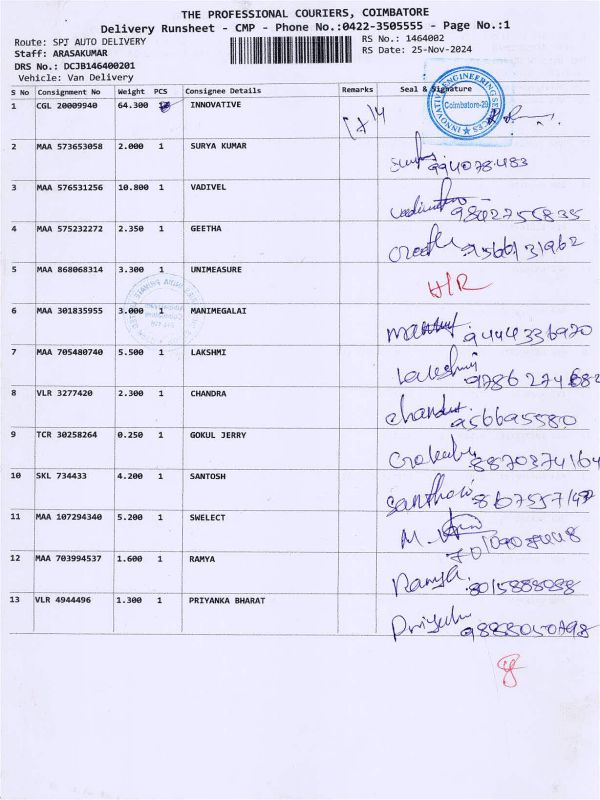 THE PROFESSIONAL COURIERS, COIMBATORE
Delivery Runsheet - CMP - Phone No.:0422-3505555 - Page No.:1
Route: SPJ AUTO DELIVERY RS No.: 1464002
Staff: ARASAKUMAR RS Date: 25-Nov-2024
DRS No.: DCJB146400201
Vehicle: Van Delivery
S No Consignment No Weight PCS Consignee Details Remarks Seal & Signature
1 CGL 20009940 64.300 INNOVATIVE
INNOVATIVE ENGINEERING SERVICES
Coimbatore-29
2 MAA 573653058 2.000 1 SURYA KUMAR
994078483
3 MAA 576531256 10.800 1 VADIVEL
9842755835
4 MAA 575232272 2.350 1 GEETHA
9566131962
5 MAA 868068314 3.300 1 UNIMEASURE
6 MAA 301835955 3.000 1 MANIMEGALAI
9444336970
7 MAA 705480740 5.500 1 LAKSHMI
Lakshmi
8 VLR 3277420 2.300 1 CHANDRA
9566955580
9 TCR 30258264 0.250 1 GOKUL JERRY
8870374164
10 SKL 734433 4.200 1 SANTOSH
11 MAA 107294340 5.200 1 SWELECT
12 MAA 703994537 1.600 1 RAMYA
Ramya
13 VLR 4944496 1.300 1 PRIYANKA BHARAT